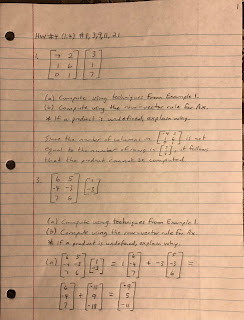 1
HW #4 (1.4) #1, 3, 9, 11, 21
1. [-4 2; 1 6; 0 1] [3; 1; 7]
(a) Compute using techniques from Example 1.
(b) Compute using the row-vector rule for Ax.
* If a product is undefined, explain why.
Since the number of columns in [-4 2; 1 6; 0 1] is not
equal to the number of rows in [3; 1; 7], it follows
that the product cannot be computed.
3. [6 5; -4 -3; 7 6] [1; -3]
(a) Compute using techniques from Example 1.
(b) Compute using the row-vector rule for Ax
* if a product is undefined, explain why.
(a) [6 5; -4 -3; 7 6] [1; -3] = 1 [6; -4; 7] + -3 [5; -3; 6] =
[6; -4; 7] + [-15; 9; -18] = [-9; 5; -11]